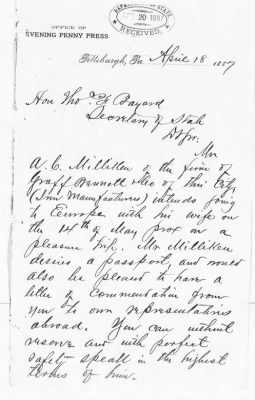 OFFICE OF
EVENING PENNY PRESS.
DEPARTMENT OF STATE
APR 20 1887
RECEIVED.
Pittsburgh, Pa. April 18 1887
Hon Tho. F Bayard
Secretary of State
D Sir:
Mr
A. C. Milliken of the firm of
Graff Bennett & Co of this City
(Iron Manufacturers) intends going
to Europe with his wife on
the 14th of May prox on a
pleasure trip. Mr Milliken
desires a passport, and would
also be pleased to have a
letter of commendation from
you to own representatives
abroad. You can without
reserve and with perfect
safety speak in the highest
terms of him.